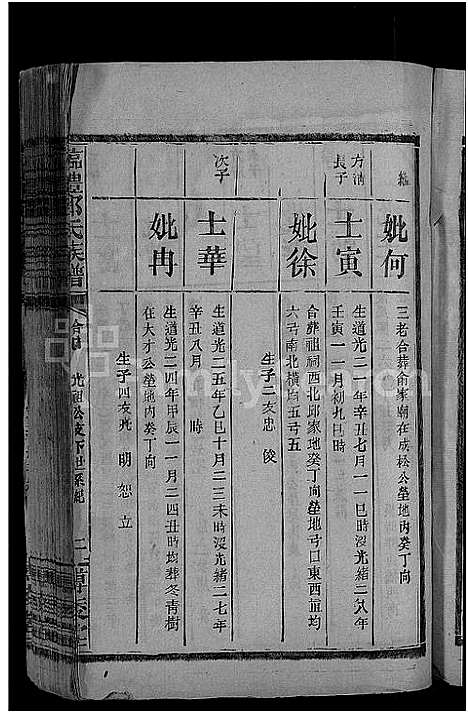 繼
妣何
三老合葬俞家朝在成松公塋地內癸丁向
方浦
長子
士寅
生道光二一年辛丑七月一一日時沒光緒二八年
壬寅一一月初九巳時
妣徐
合葬祖祠西北邱家地癸丁向塋地弓口東西直均
六弓南北橫均五弓五
生子二友忠 陵
次子
士華
生道光二五年乙巳十月二三未時沒光緒二七年
辛丑八月 時
妣冉
生道光二四年甲辰一一月二四丑時均葬冬青樹
在大才公塋地內癸丁向
生子四友光 明 恕 立
氏族譜
光祖公支下世系紀